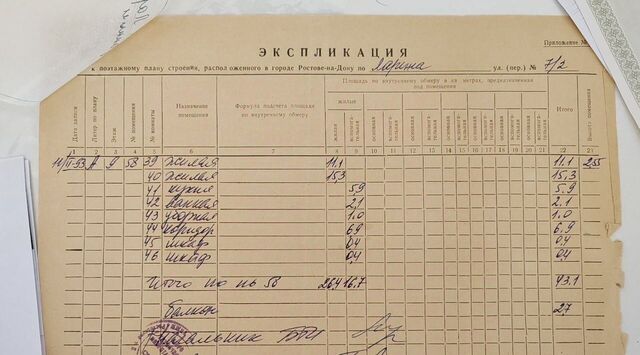 ЭКСПЛИКАЦИЯ
Приложение №
к поэтажному плану строения, расположенного в городе Ростове-на-Дону по Ларина ул. (пер.) № 7/2
Площадь по внутреннему обмеру в кв. метрах, предназначенная под помещения
Дата записи Литер по плану Этаж № помещения № комнаты Назначение помещения Формула подсчета площади по внутреннему обмеру жилые Итого Высота помещ.
жилая вспомогательная основная вспомогательная основная вспомогательная основная вспомогательная основная вспомогательная основная вспомогательная основная вспомогательная
1 2 3 4 5 6 7 8 9 10 11 12 13 14 15 16 17 18 19 20 21 22 23
14/II-93 А 9 58 39 жилая 11,1 11,1 2,55
40 жилая 15,3 15,3
41 кухня 5,9 5.9
42 ванная 2,1 2.1
43 уборная 1.0 1.0
44 коридор 6,9 6.9
45 шкаф 0,4 0,4
46 шкаф 0,4 0,4
Итого по пь 58 26,4 16,7 43.1
балкон 2,7
Начальник БТИ